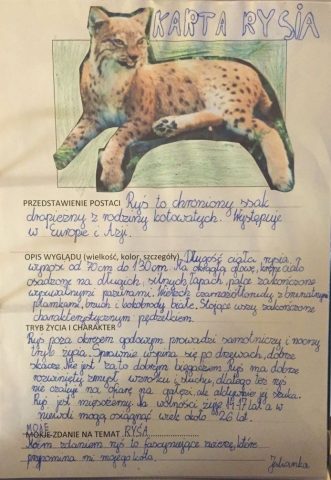 KARTA RYSIA
PRZEDSTAWIENIE POSTACI Ryś to chroniony ssak
drapieżny z rodziny kotowatych. Występuje
w Europie i Azji.
OPIS WYGLĄDU (wielkość, kolor, szczegóły) Długość ciała rysia
wynosi od 70cm do 130cm. Ma okrągłą głowę, krępe ciało
osadzone na długich, silnych łapach, palce zakończone
wysuwalnymi pazurami. Wierzch czerwonobrudny z brunatnymi
plamkami, brzuch i bokobrody białe. Stojące uszy zakończone
charakterystycznym pędzelkiem.
TRYB ŻYCIA I CHARAKTER
Ryś poza okresem godowym prowadzi samotniczy i nocny
tryb życia. Sprawnie wspina się po drzewach, dobrze
skacze. Nie jest zało dobrym biegaczem. Ryś ma dobrze
rozwinięty zmysł wzroku i słuchu, dlatego też ryś
nie czatuje na ofiarę na gałęzi, ale aktywnie jej szuka.
Ryś jest mięsożerny. Na wolności żyje 14-17 lat a w
niewoli mogą osiągnąć wiek około 26 lat.
MOJE
MOJE ZDANIE NA TEMAT RYSIA
Moim zdaniem ryś to fascynujące zwierzę, które
przypomina mi mojego kota.